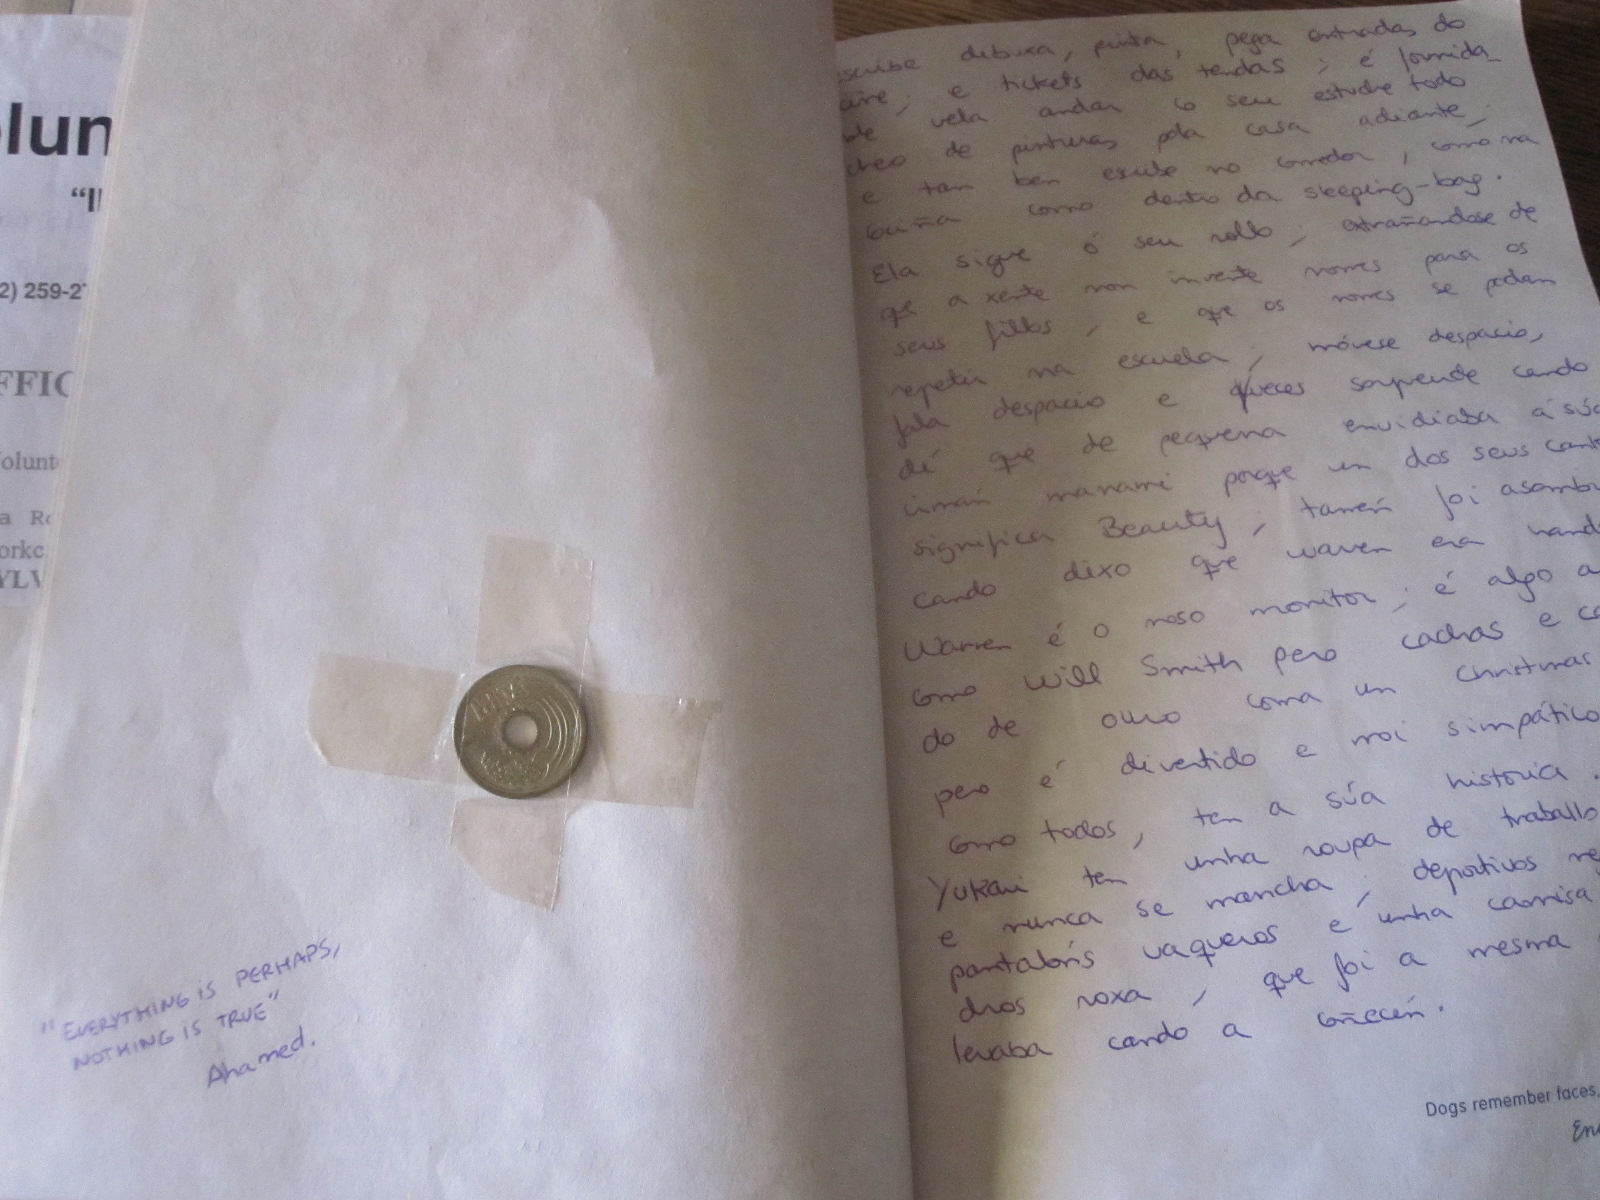 olun
“I
2) 259-2
FFIC
olunt
a Ro
orkc
YLV
"EVERYTHING IS PERHAPS,
NOTHING IS TRUE"
Ahamed.
scribe debuxa, pinta, pega entradas do
aire; e tickets das tendas; é
de vela andar co seu estuche todo
cheo de pinturas pola casa adiante;
e tam ben escribe no corredor, como na
cociña como dentro da sleeping-bag.
Ela sigue ó seu rollo; extrañandose de
que a xente non invente nomes para os
seus fillos, e que os nomes se podan
repetir na escuela; móvese despacio,
fala despacio e qveces sorprende cando
di que de pequena envidiaba á súa
irmán manami porque un dos seus
significa Beauty; tamén foi asombr
cando dixo que warren era
Warren é o noso monitor; é algo a
como Will Smith pero cachas e
do de ouro coma un Christmas
pero é divertido e moi simpático
como todos, ten a súa historia.
Yukari ten unha roupa de traballo
e nunca se mancha; deportivos
pantalóns vaqueros e unha camisa
dros roxa, que foi a mesma
levaba cando a coñecín.
Dogs remember faces,